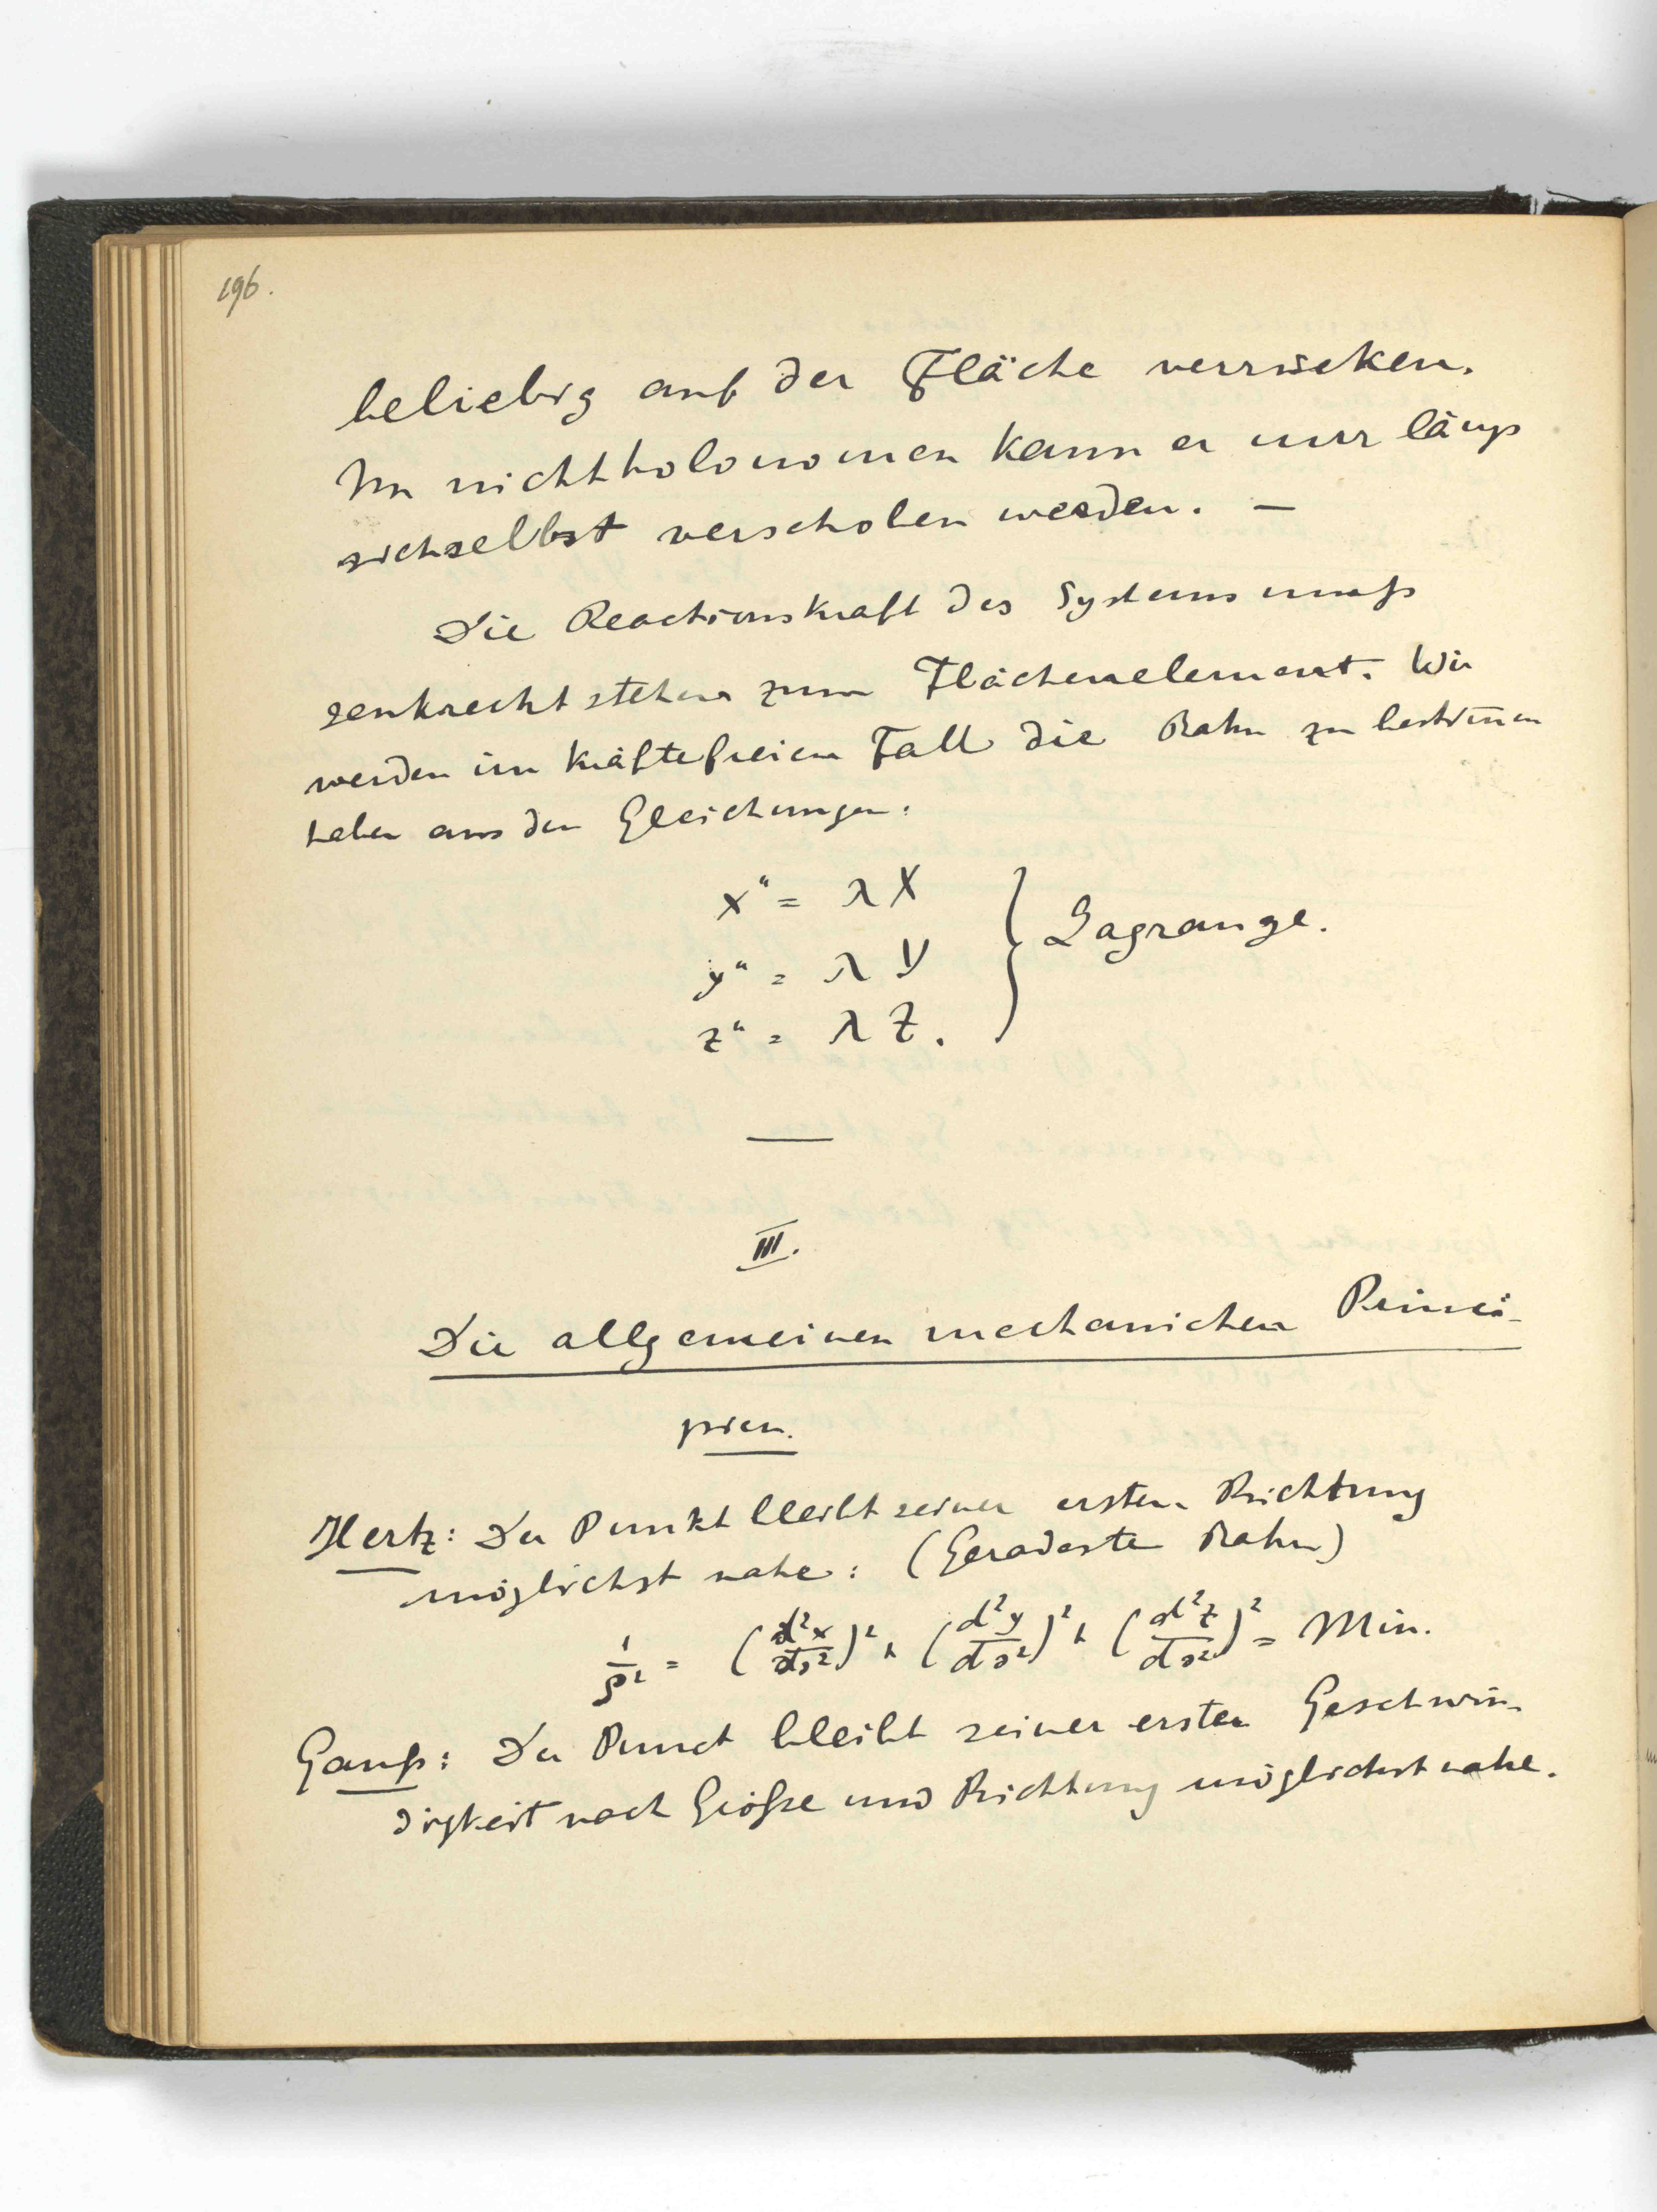 196.
beliebig auf der Fläche verrücken.
Im nichtholonomen kann er nur längs
sichselbst verschoben werden. —
Die Reactionskraft des Systems muß
senkrecht stehen zum Flächenelement. Wir
werden im kräftefreien Fall die Bahn zu bestim̅en
haben aus den Gleichungen:
x″ = λX
y″ = λY } Lagrange.
z″ = λZ.
—
III.
Die allgemeinen mechanichen Princi-
pien.
Hertz: Der Punkt bleibt seiner ersten Richtung
möglichst nahe: (Geradeste Bahn)
1/ρ² = (d²x/ds²)² + (d²y/ds²)² + (d²z/ds²)² = Min.
Gauß: Der Punct bleibt seiner ersten Geschwin-
digkeit nach Größe und Richtung möglichst nahe.